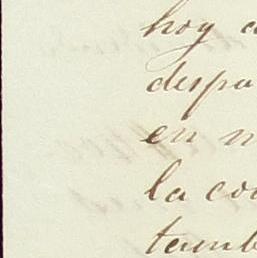 hoy
despa
en
la co
tamb